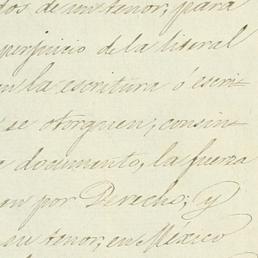 dos de un tenor, para
perjuicio de la literal
en la escritura ó escri-
se otorguen, consin-
documento, la fuerza
por Derecho; y
un tenor, en México